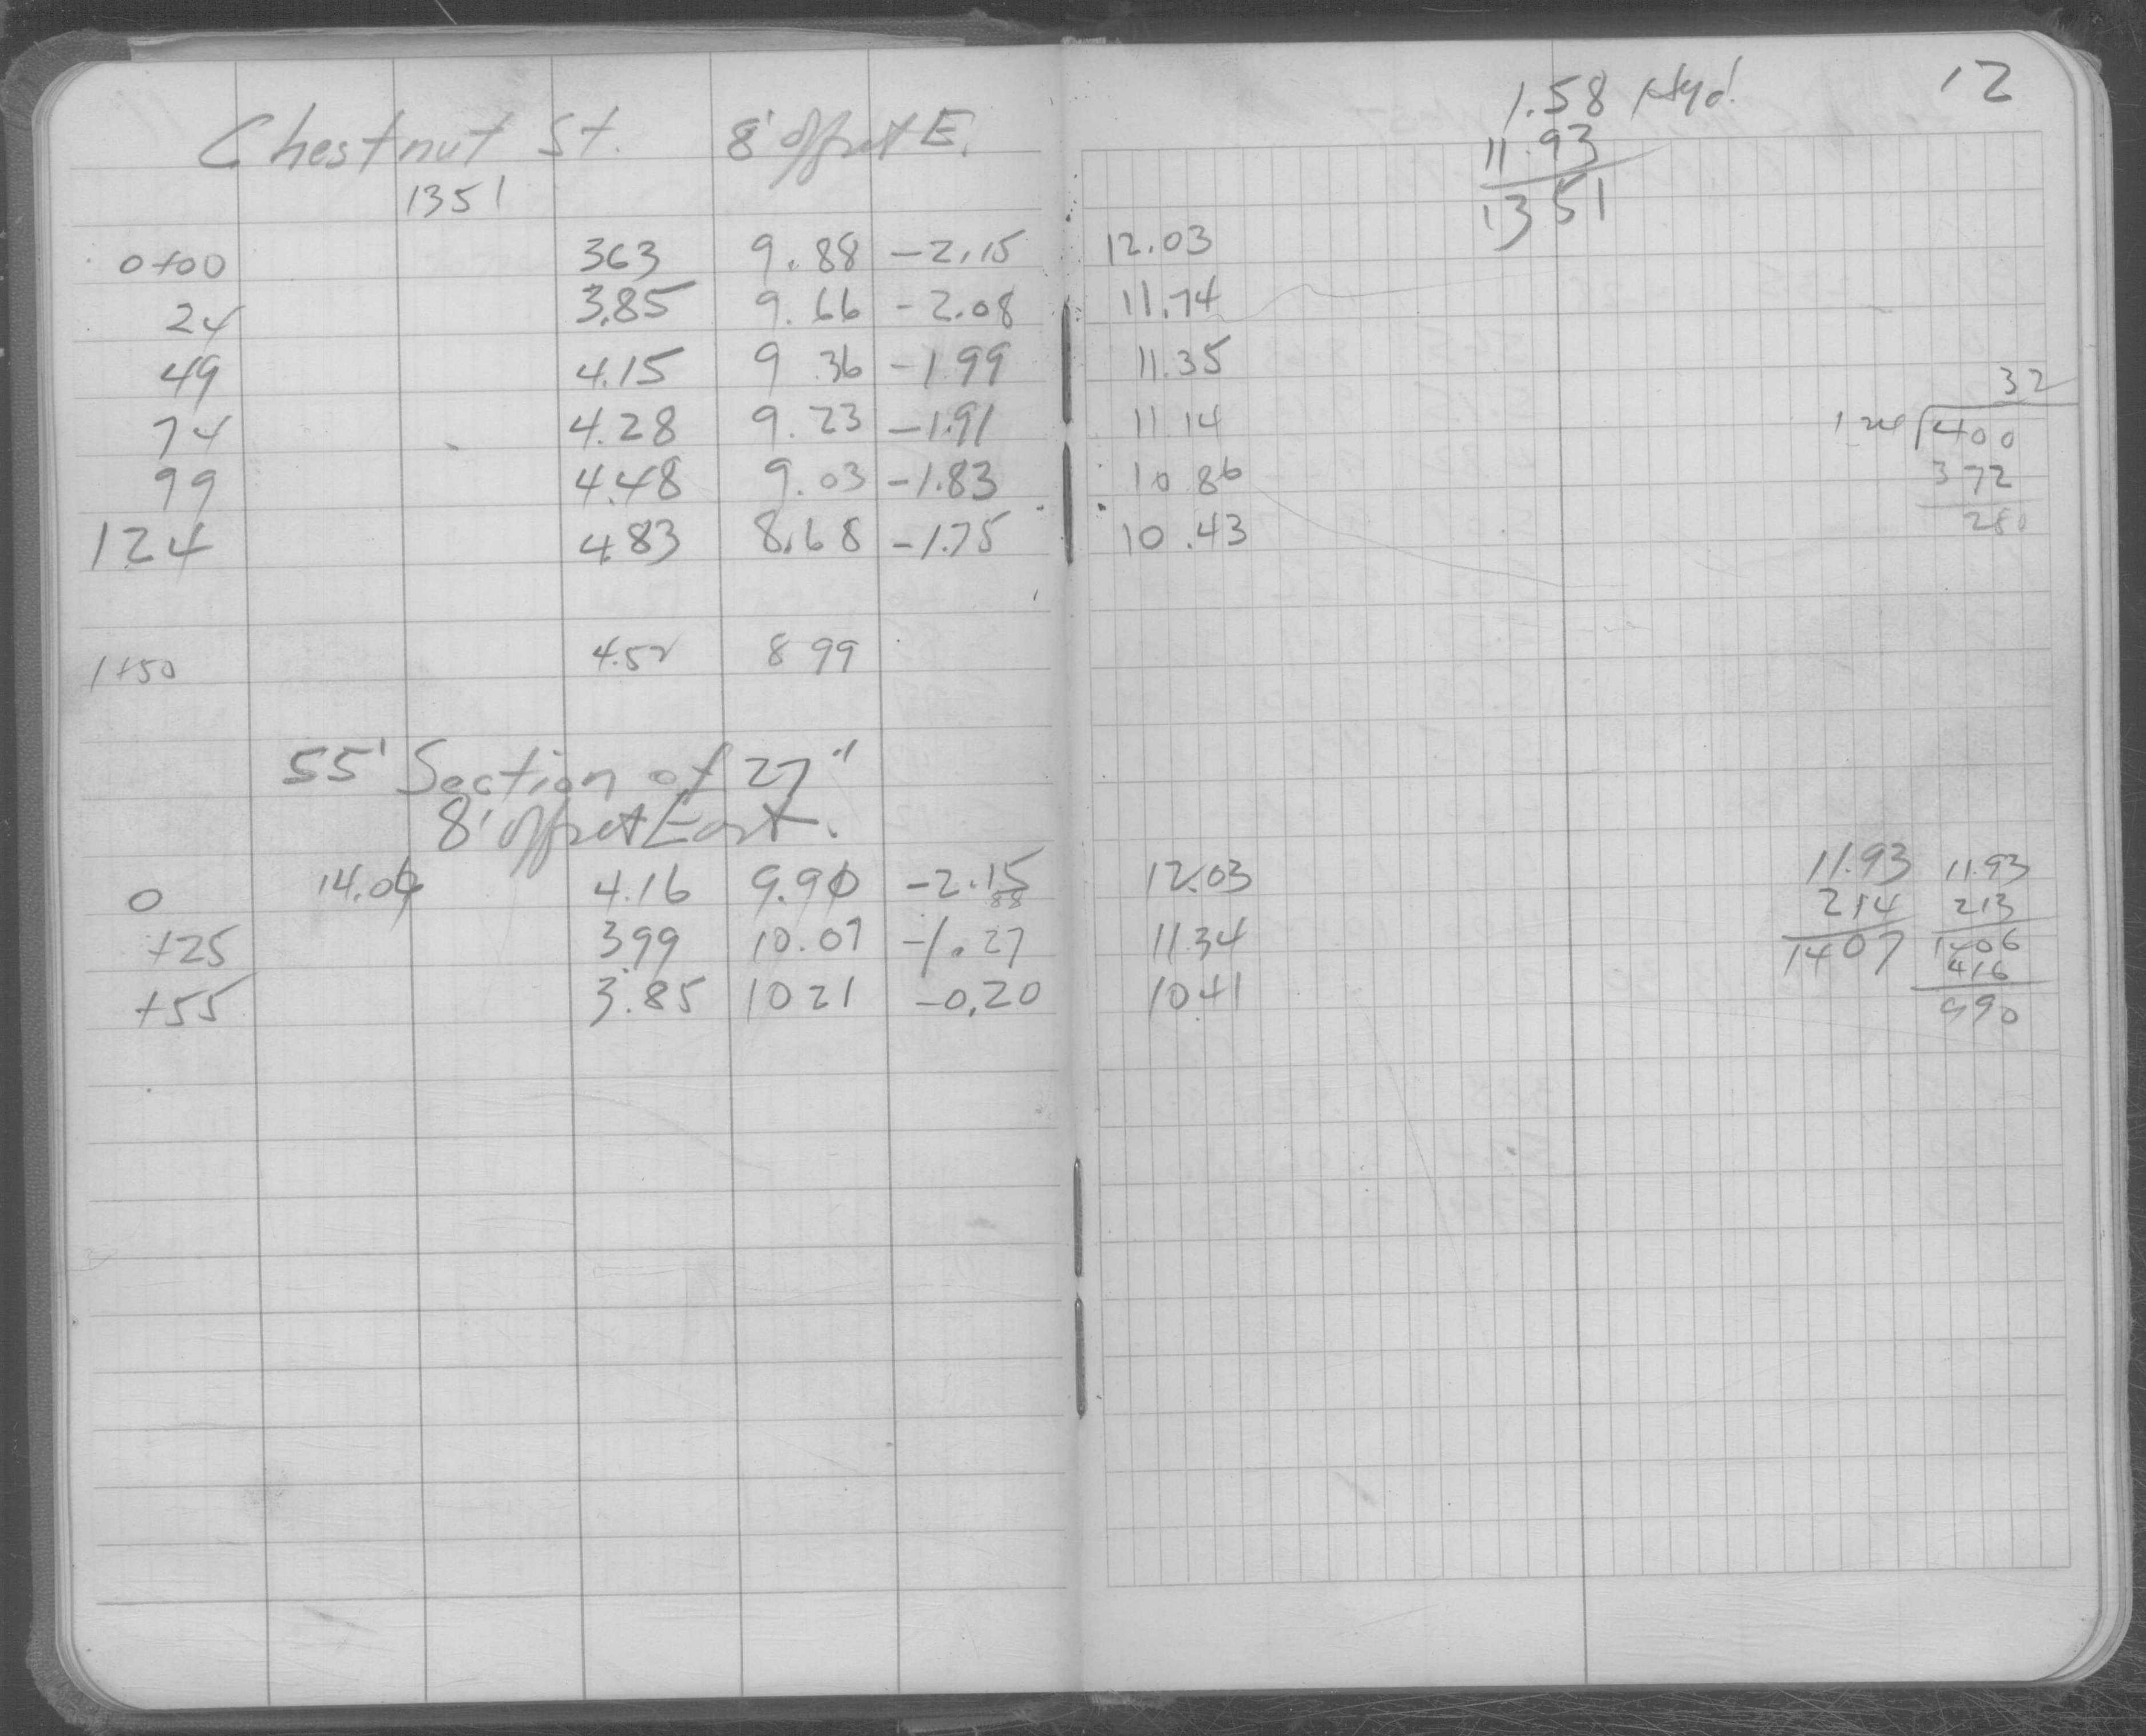 12
Chestnut St. 8' offset E.
1351
1.58 Hyd.
11.93
1351
0+00 363 9.88 -2.15 12.03
24 3.85 9.66 -2.08 11.74
49 4.15 9.36 -1.99 11.35
74 4.28 9.23 -1.91 11.14
99 4.48 9.03 -1.83 10 86
124 4.83 8.68 -1.75 10.43
32
124 400
372
280
1+50 4.52 8 99
55' Section of 27"
8' offset East.
0 14.06 4.16 9.90 -2.15 12.03
88
+25 399 10.07 -1.27 11.34
+55 3.85 10 21 -0.20 10.41
11.93
214
1407
11.93
213
1406
416
990